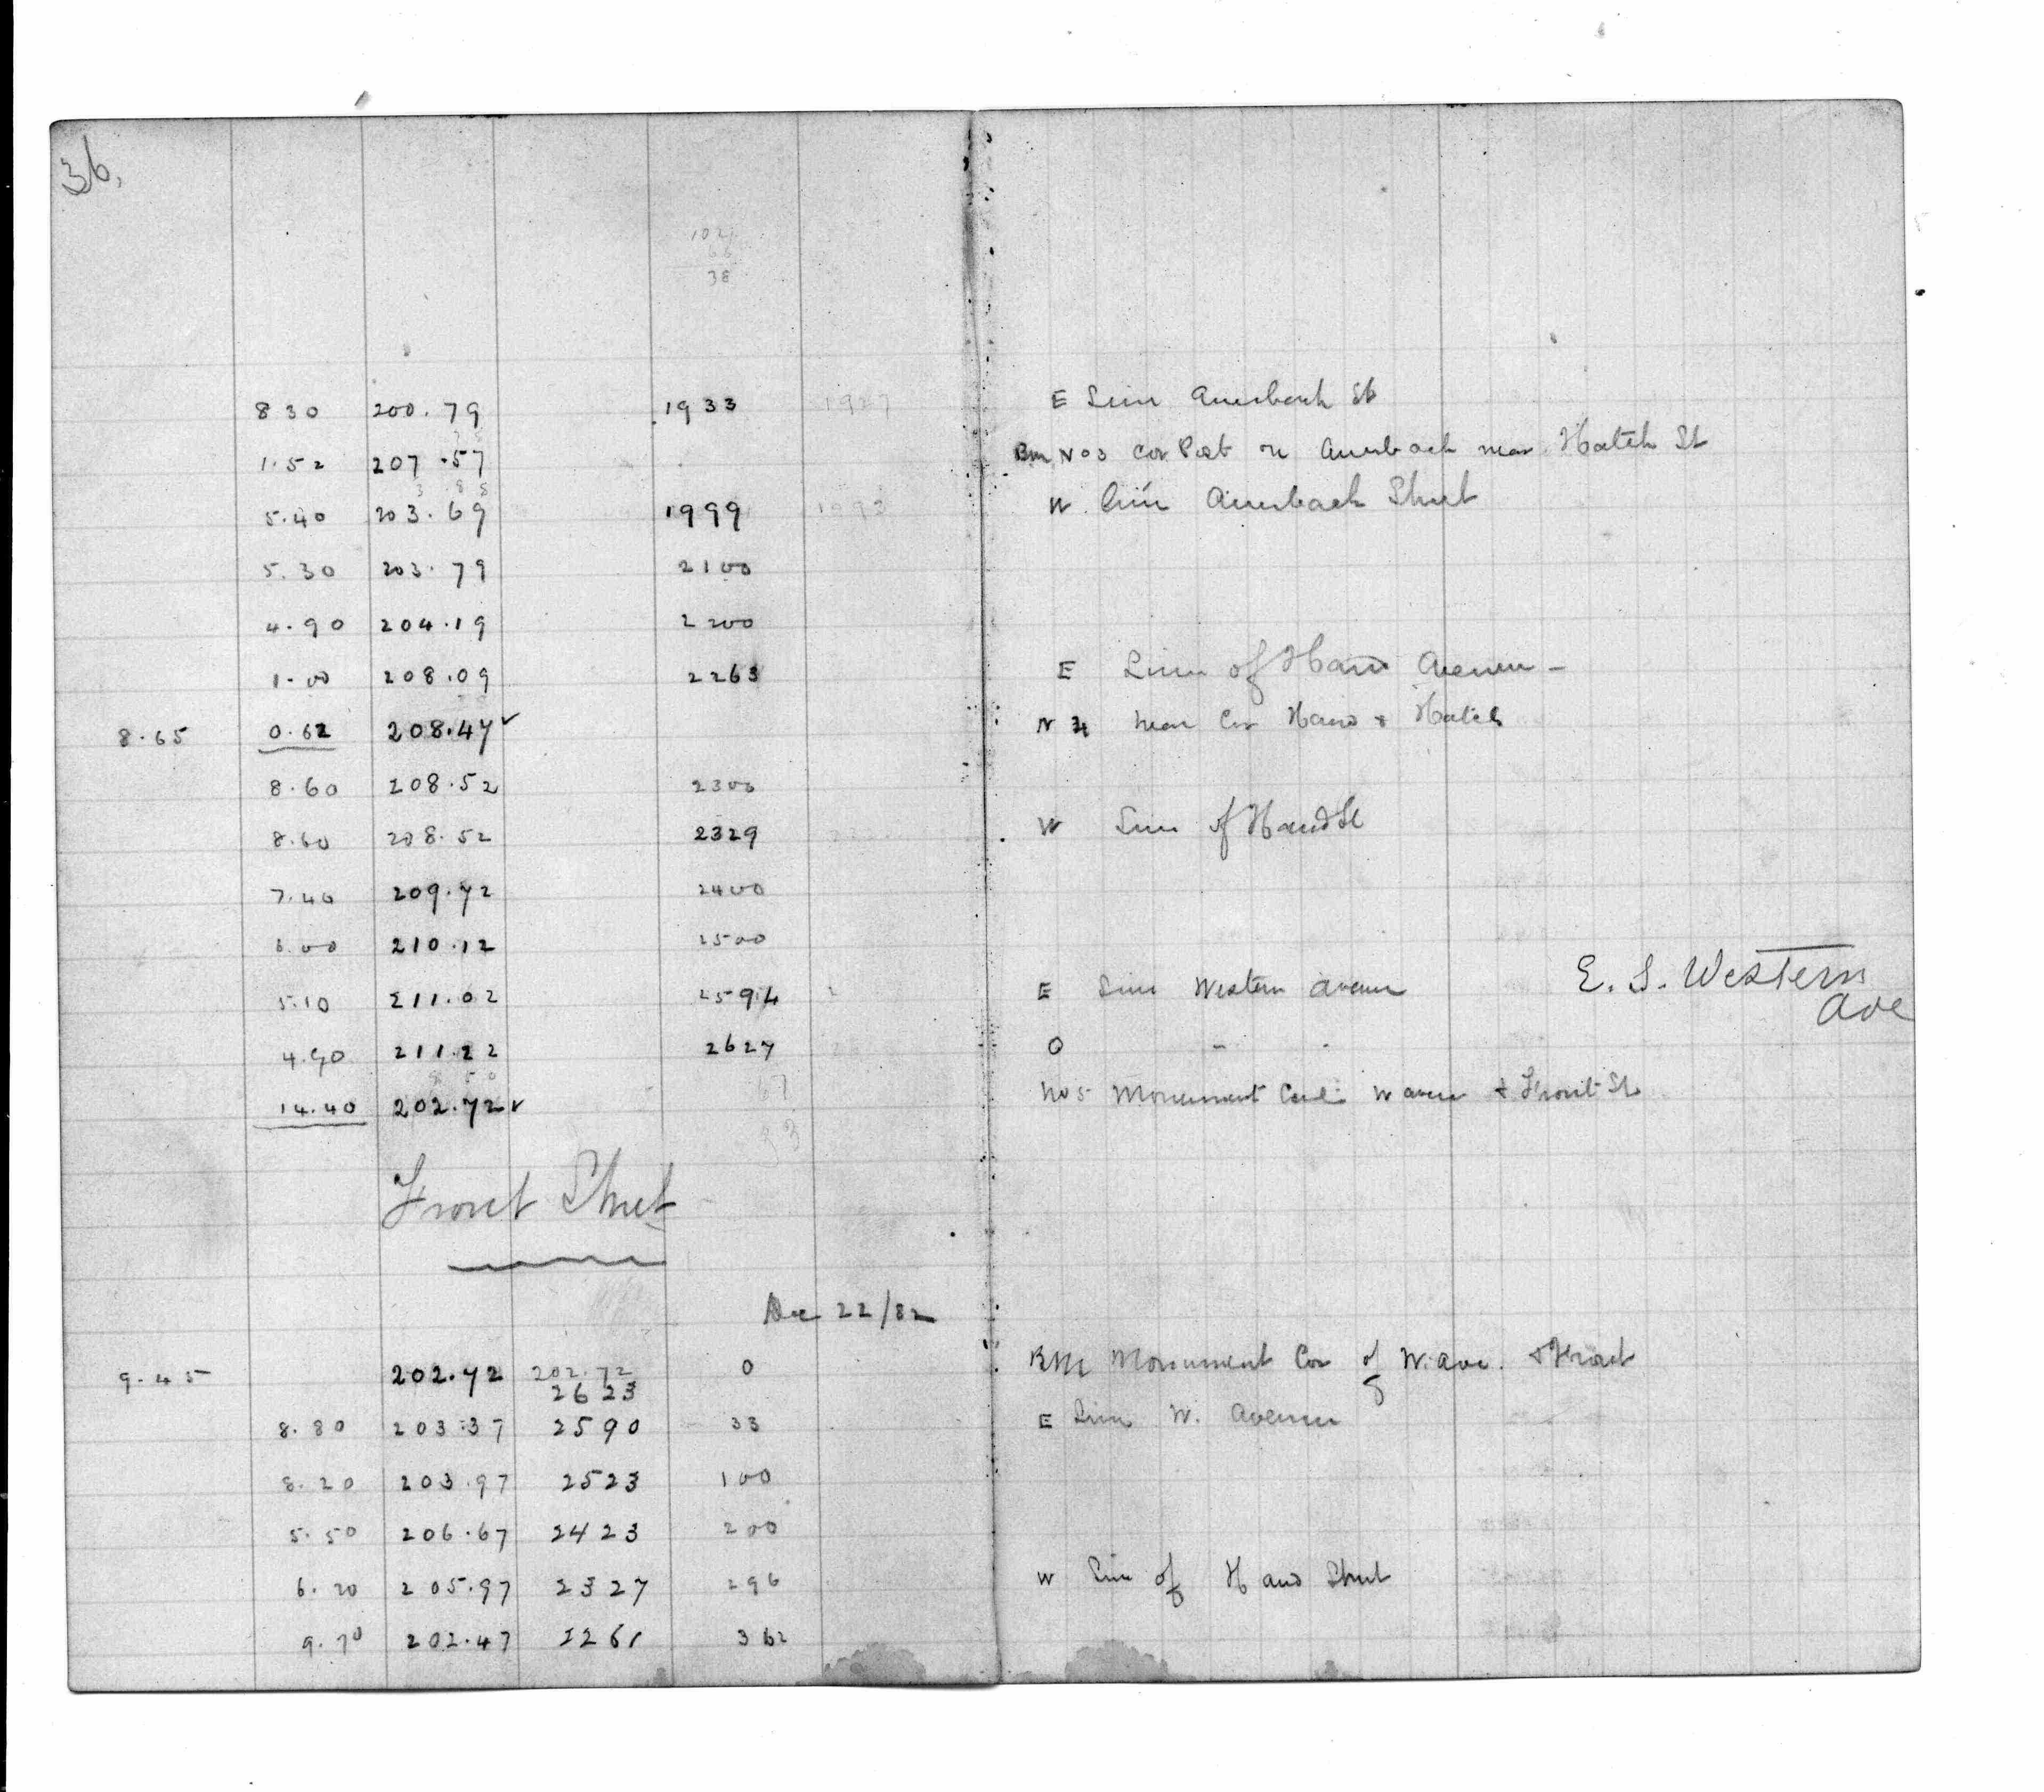 36.
102
66
38
8 30 200.79 1933 1927 E Line Auerbach St
1.52 207.57 Bm No 3 Cor Post on Auerbach near Hatch St
3 88
5.40 203.69 1999 1993 W. Line Auerbach Street
5.30 203.79 2100
4.90 204.19 2200
1.00 208.09 2263 E Line of Hand Avenue -
8.65 0.62 208.47 ✓ N 4 near Cor Hand & Hatch
8.60 208.52 2300
8.60 208.52 2329 W Line of Hand St
7.40 209.72 2400
6.00 210.12 2500
5.10 211.02 2594 E Line Western Avenue E. S. Western Ave
4.90 211.22 2627 O " "
8 50
14.40 202.72 ✓ 67 No 5 Monument W avenue & Front St
33
Front Street
Dec 22/82
9.45 202.72 202.72 0 BM Monument Cor of W. Ave. & Front
2623
8.80 203.37 2590 33 E Line W. Avenue
8.20 203.97 2523 100
5.50 206.67 2423 200
6.20 205.97 2327 296 W Line of Hand Street
9.70 202.47 2261 362